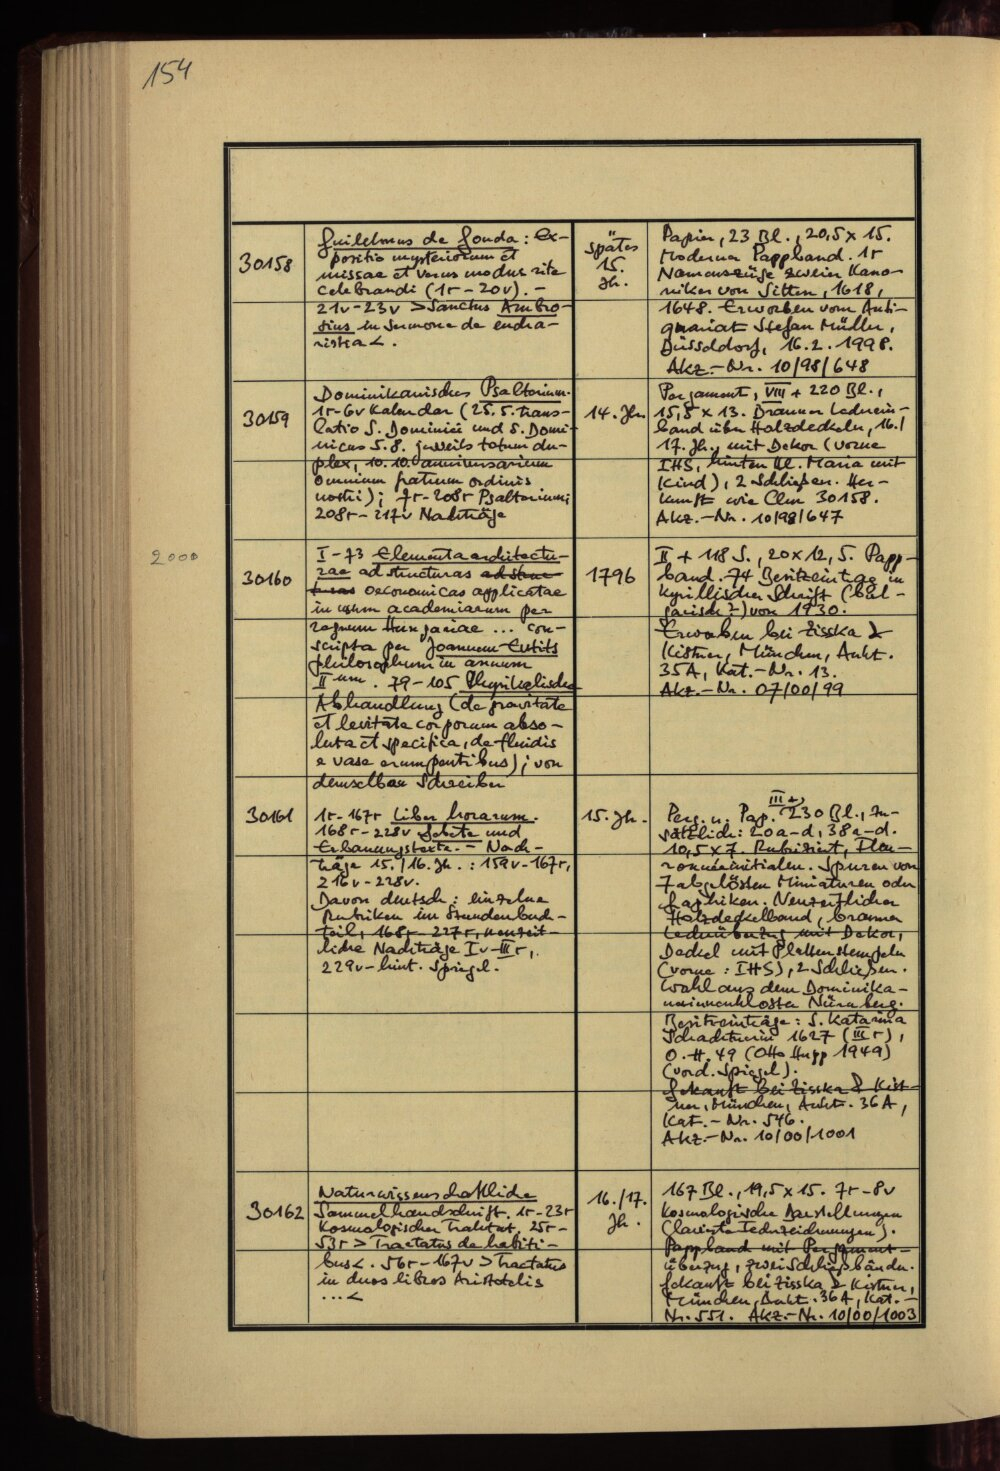 154
30158
Guilelmus de Gouda: Ex-
positio mysteriorum et
missae et verus modus rite
celebrandi (1r-20v). -
21v-23v >Sanctus Ambro-
sius in sermone de eucha-
ristia<.
spätes
15.
Jh.
Papier, 23 Bl., 20,5 x 15.
Moderner Pappband. 1r
Namenszüge zweier Kano-
niker von Sitten, 1618,
1648. Erworben vom Anti-
quariat Stefan Müller,
Düsseldorf, 16.2.1998.
Akz.-Nr. 10/98/648
30159
Dominikanisches Psalterium.
1r-6v Kalender (25.5. trans-
latio S. Dominici und S. Domi-
nicus 5.8. jeweils totum du-
plex, 10.10. anniversarium
omnium fratrum ordinis
nostri); 7r-208r Psalterium;
208r-217v Nachträge
14. Jh.
Pergament, VIII + 220 Bl.,
15,5 x 13. Brauner Lederein-
band über Holzdeckeln, 16./
17. Jh., mit Dekor (vorne
IHS, hinten Hl. Maria mit
Kind), 2 Schließen. Her-
kunft wie Clm 30158.
Akz.-Nr. 10/98/647
2000
30160
I-73 Elementa architectu-
rae ad structuras ad struc-
turas oeconomicas applicatae
in usum academiarum per
regnum Hungariae ... con-
scripta per Joannem
philosophum in annum
II um. 79-105 Physikalische
Abhandlung (de gravitate
et levitate corporum abso-
luta et specifica, de fluidis
e vase erumpentibus); von
demselben Schreiber
1796
II + 118 S., 20x12,5. Papp-
band. 74 Besitzeintrag in
kyrillischer Schrift (bul-
garisch?) von 1930.
Erworben bei Zisska &
Kistner, München, Aukt.
35A, Kat.-Nr. 13.
Akz.-Nr. 07/00/99
30161
1r-167r Liber horarum.
168r-228v Gebete und
Erbauungstexte. - Nach-
träge 15./16. Jh.: 159v-167r,
216v-228v.
Davon deutsch: einzelne
Rubriken im Stundenbuch-
teil, 168r-227r, neuzeit-
liche Nachträge Iv-IIIr,
229v-hint. Spiegel.
15. Jh.
III +
Perg. u. Pap. 230 Bl., zu-
sätzlich: 20a-d, 38a-d.
10,5x7. Rubriziert, Fleu-
ronnéeinitialen. Spuren von
7 abgelösten Miniaturen oder
Graphiken. Neuzeitlicher
Holzdeckelband, brauner
Lederüberzug mit Dekor,
Deckel mit Plattenstempeln
(vorne: IHS), 2 Schließen.
Wohl aus dem Dominika-
nerinnenkloster Nürnberg.
Besitzeinträge: S. Katarina
1627 (IIIr),
O.H. 49 (Otto Hupp 1949)
(vord. Spiegel).
Gekauft bei Zisska & Kist-
ner, München, Aukt. 36A,
Kat.-Nr. 546.
Akz.-Nr. 10/00/1001
30162
Naturwissenschaftliche
Sammelhandschrift. 1r-23r
Kosmologischer Traktat. 25r-
53r >Tractatus de habiti-
bus<. 56r-167v >Tractatus
in duos libros Aristotelis
...<
16./17.
Jh.
167 Bl., 19,5x15. 7r-8v
Kosmologische Darstellungen
(lavierte Federzeichnungen).
Pappband mit Pergament-
überzug, zwei Schließbänder.
Gekauft bei Zisska & Kistner,
München, Aukt. 36A, Kat.-
Nr. 551. Akz.-Nr. 10/00/1003